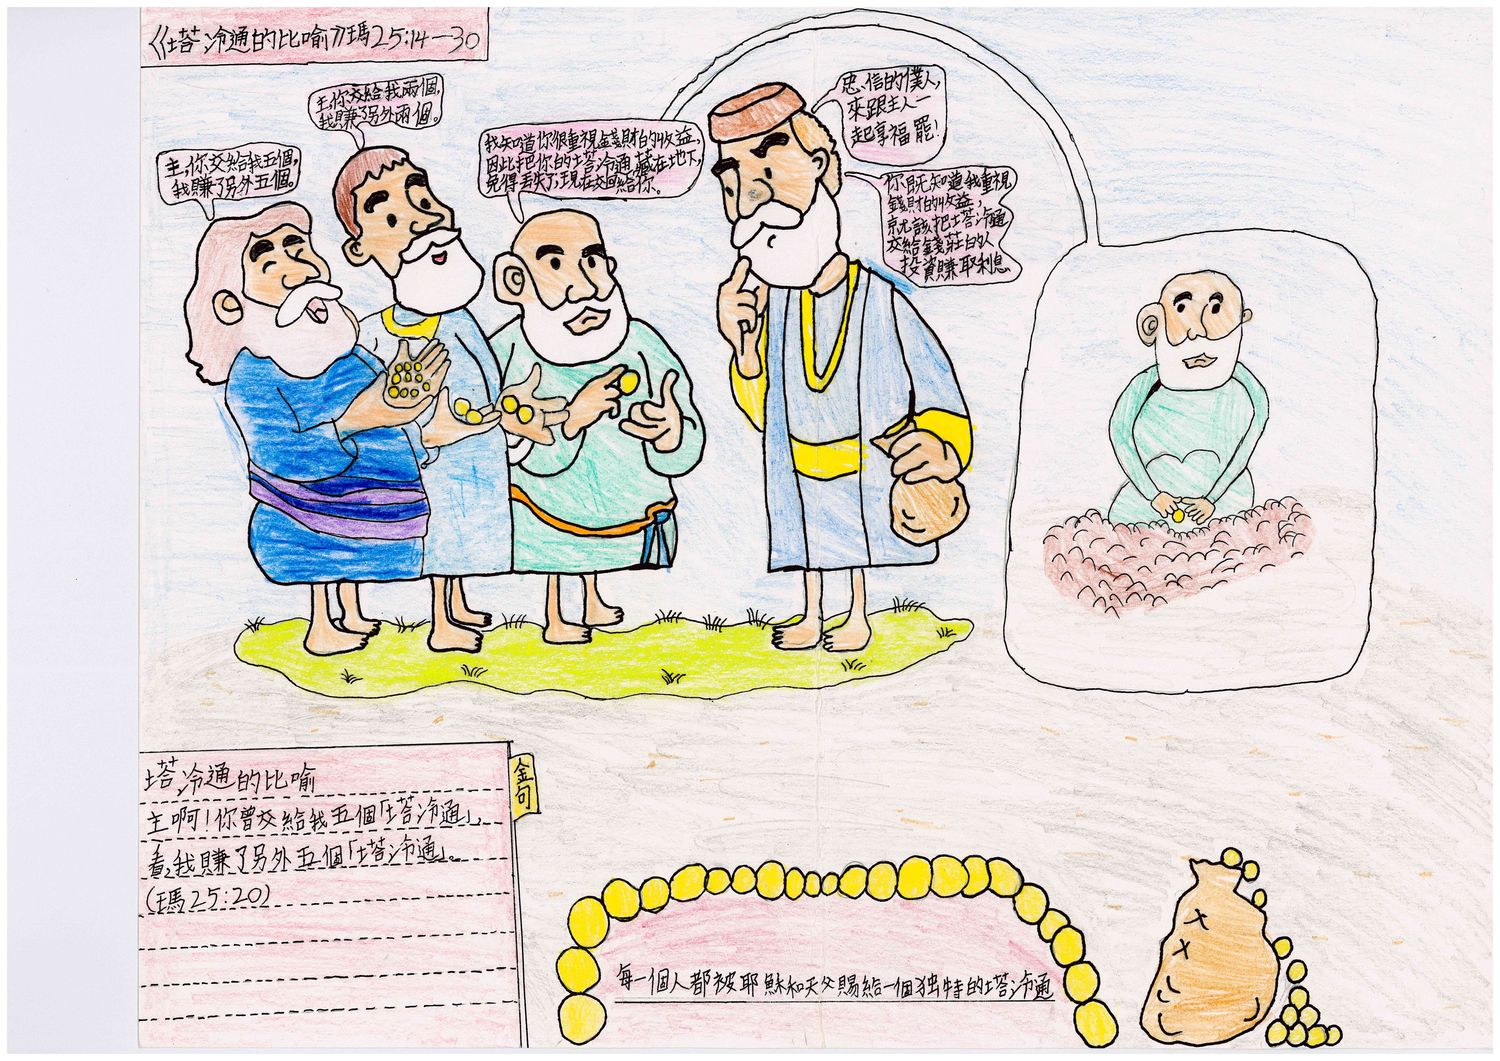 《塔冷通的比喻》瑪25:14-30
主,你交給我五個,
我賺了另外五個。
主,你交給我兩個,
我賺了另外兩個。
我知道你很重視錢財的收益,
因此把你的塔冷通藏在地下,
免得丟失了,現在交回給你。
忠信的僕人,
來跟主人一
起享福罷!
你既知道我重視
錢財的收益,
就該把塔冷通
交給錢莊的人
投資賺取利息
金句
塔冷通的比喻
主啊!你曾交給我五個「塔冷通」,
看,我賺了另外五個「塔冷通」。
(瑪25:20)
每一個人都被耶穌和天父賜給一個独特的塔冷通